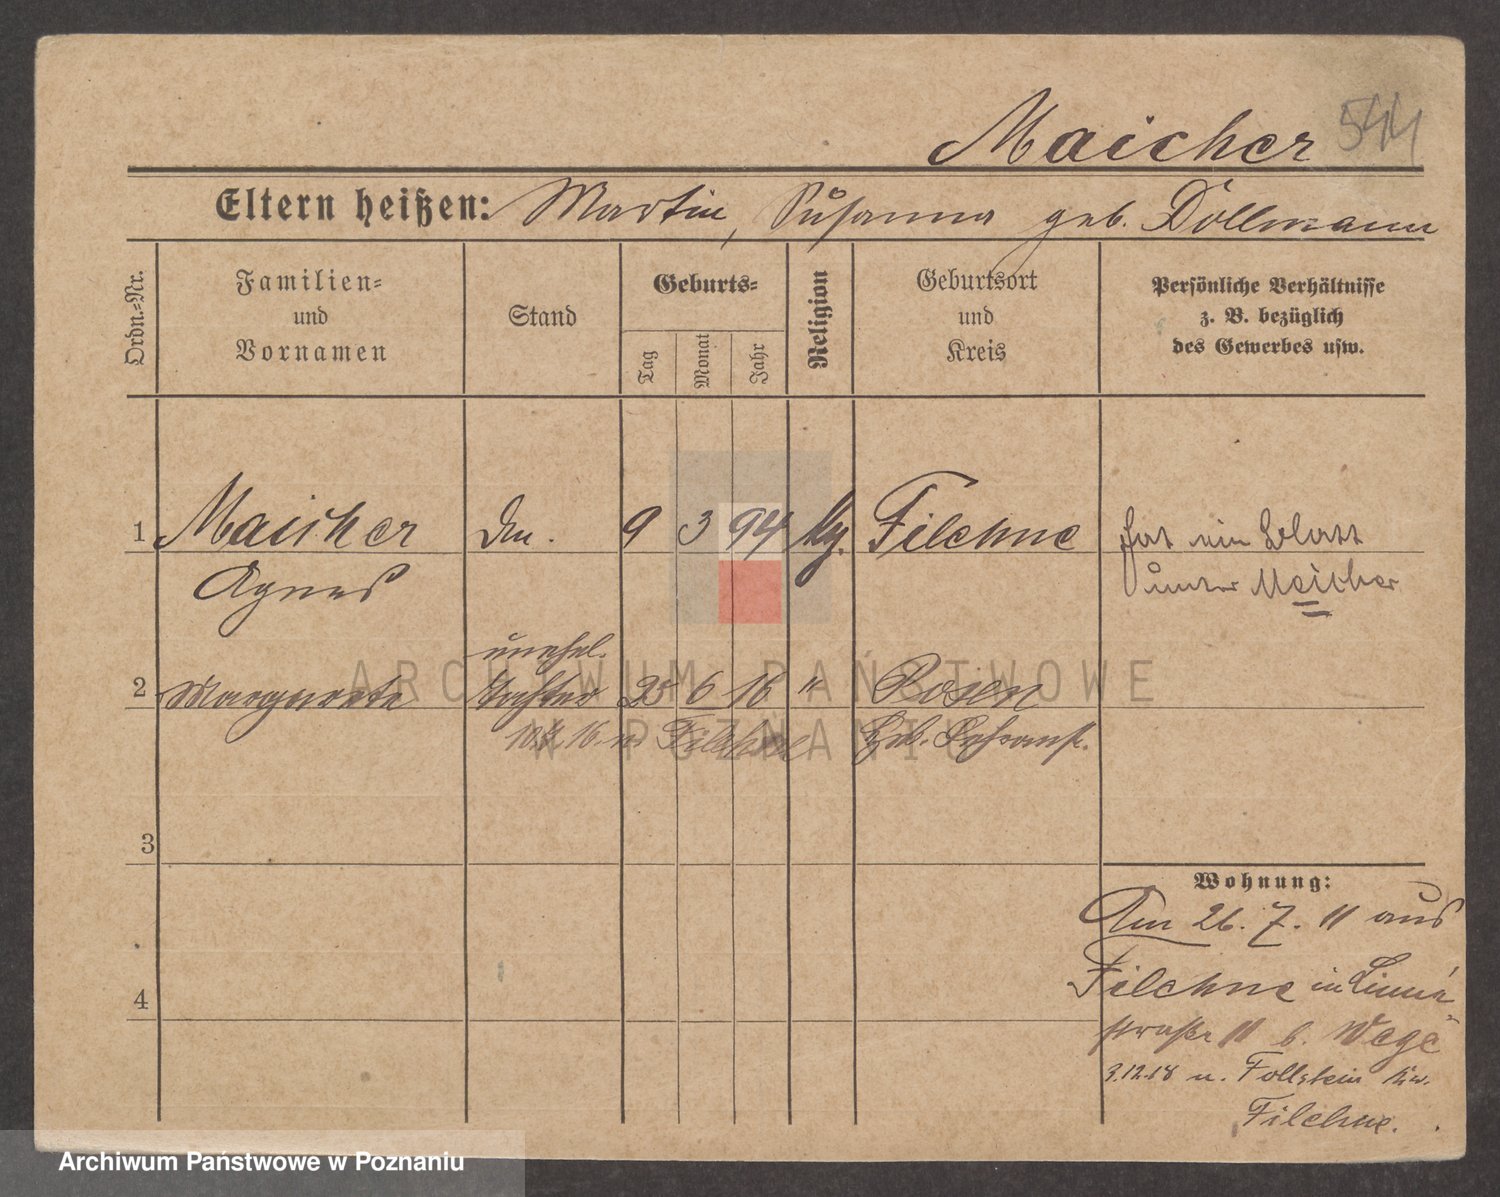 Maicher 544
Eltern heißen: Martin, Susanna geb. Dollmann
Ordn.-Nr.
Familien-
und
Vornamen
Stand
Geburts-
Tag
Monat
Jahr
Religion
Geburtsort
und
Kreis
Persönliche Verhältnisse
z. B. bezüglich
des Gewerbes usw.
1 Maicher Dm. 9 3 94 kg. Filehne hat ein Blatt
Agnes unter Meicher
unehl.
2 Margarete Tochter 25 6 16 " Posen
10.7.16. n. Filehne Heb.
3
Wohnung:
Am 26. 7. 11 aus
Filehne in Linné-
4
straße 11 b. Wege
3.12.18 n. Follstein Kr.
Filehne.
ARCHIWUM PAŃSTWOWE
W POZNANIU
Archiwum Państwowe w Poznaniu